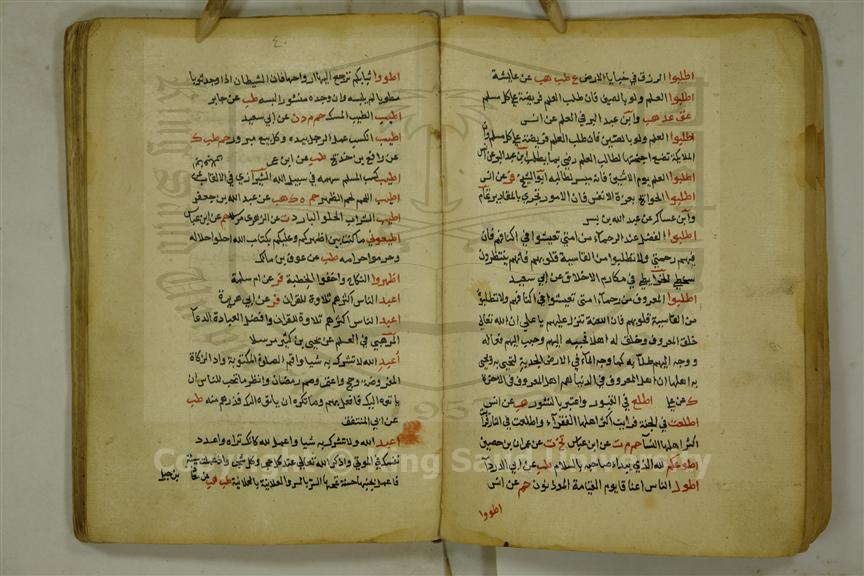 اطلبوا الرزق في خبايا الارض ع طب هب عن عايشة
اطلبوا العلم ولو بالصين فان طلب العلم فريضة على كل مسلم
عق عد هب وابن عبد البر في العلم عن انس
اطلبوا العلم ولو بالصين فان طلب العلم فريضة على كل مسلم وان
الملايكة تضع اجنحتها لطالب العلم رضى بما يطلب ابن عبد البر عن انس
اطلبوا العلم يوم الاثنين فانه ميسر لطالبه ابو الشيخ فر عن انس
اطلبوا الحوايج بعزة الانفس فان الامور تجري بالمقادير تمام
وابن عساكر عن عبد الله بن بسر
اطلبوا الفضل عند الرحماء من امتي تعيشوا في اكنافهم فان
فيهم رحمتي ولا تطلبوا من القاسية قلوبهم فانهم ينتظرون
سخطي الخرايطي في مكارم الاخلاق عن ابي سعيد
اطلبوا المعروف من رحماء امتي تعيشوا في اكنافهم ولا تطلبوه
من القاسية قلوبهم فان اللعنة تنزل عليهم يا علي ان الله تعالى
خلق المعروف وخلق له اهلا فحببه اليهم وحبب اليهم فعاله
ووجه اليهم طلابه كما وجه الماء في الارض الجدبة لتحيى به ويحيى
به اهلها ان اهل المعروف في الدنيا هم اهل المعروف في الاخرة
ك عن علي اطلع في القبور واعتبر بالنشور هب عن انس
اطلعت في الجنة فرايت اكثر اهلها الفقراء واطلعت في النار فرايت
اكثر اهلها النساء حم م ت عن ابن عباس خ ت عن عمران بن حصين
اطوعكم لله الذي يبدا صاحبه بالسلام طب عن ابي الدرداء
اطول الناس اعناقا يوم القيامة الموذنون حم عن انس
اطووا
٤٠
اطووا ثيابكم ترجع اليها ارواحها فان الشيطان اذا وجد ثوبا
مطويا لم يلبسه وان وجده منشورا لبسه طب عن جابر
اطيب الطيب المسك حم م د ن عن ابي سعيد
اطيب الكسب عمل الرجل بيده وكل بيع مبرور حم طب ك
عن رافع بن خديج طب عن ابن عمر
اطيب كسب المسلم سهمه في سبيل الله الشيرازي في الالقاب عن
اطيب اللحم لحم الظهر حم ه ك هب عن عبد الله بن جعفر
اطيب الشراب الحلو البارد ت عن الزهري مرسلا حم عن ابن عباس
اطيعوني ما كنت بين اظهركم وعليكم بكتاب الله احلوا حلاله
وحرموا حرامه طب عن عوف بن مالك
اظهروا النكاح واخفوا الخطبة فر عن ام سلمة
اعبد الناس اكثرهم تلاوة للقران فر عن ابي هريرة
اعبد الناس اكثرهم تلاوة للقران وافضل العبادة الدعاء
المرهبي في العلم عن يحيى بن كثير مرسلا
اعبد الله لا تشرك به شيا واقم الصلوة المكتوبة واد الزكاة
المفروضة وحج واعتمر وصم رمضان وانظر ما تحب للناس ان
ياتوه اليك فافعله بهم وما تكره ان ياتوه اليك فذرهم منه طب
عن ابي المنتفق
اعبد الله ولا تشرك به شيا واعمل لله كانك تراه واعدد
نفسك في الموتى واذكر الله تعالى عند كل حجر وكل شجر واذا عملت سيئة
فاعمل بجنبها حسنة السر بالسر والعلانية بالعلانية طب هب عن معاذ بن جبل